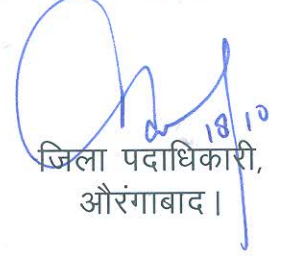 18/10
जिला पदाधिकारी,
औरंगाबाद।